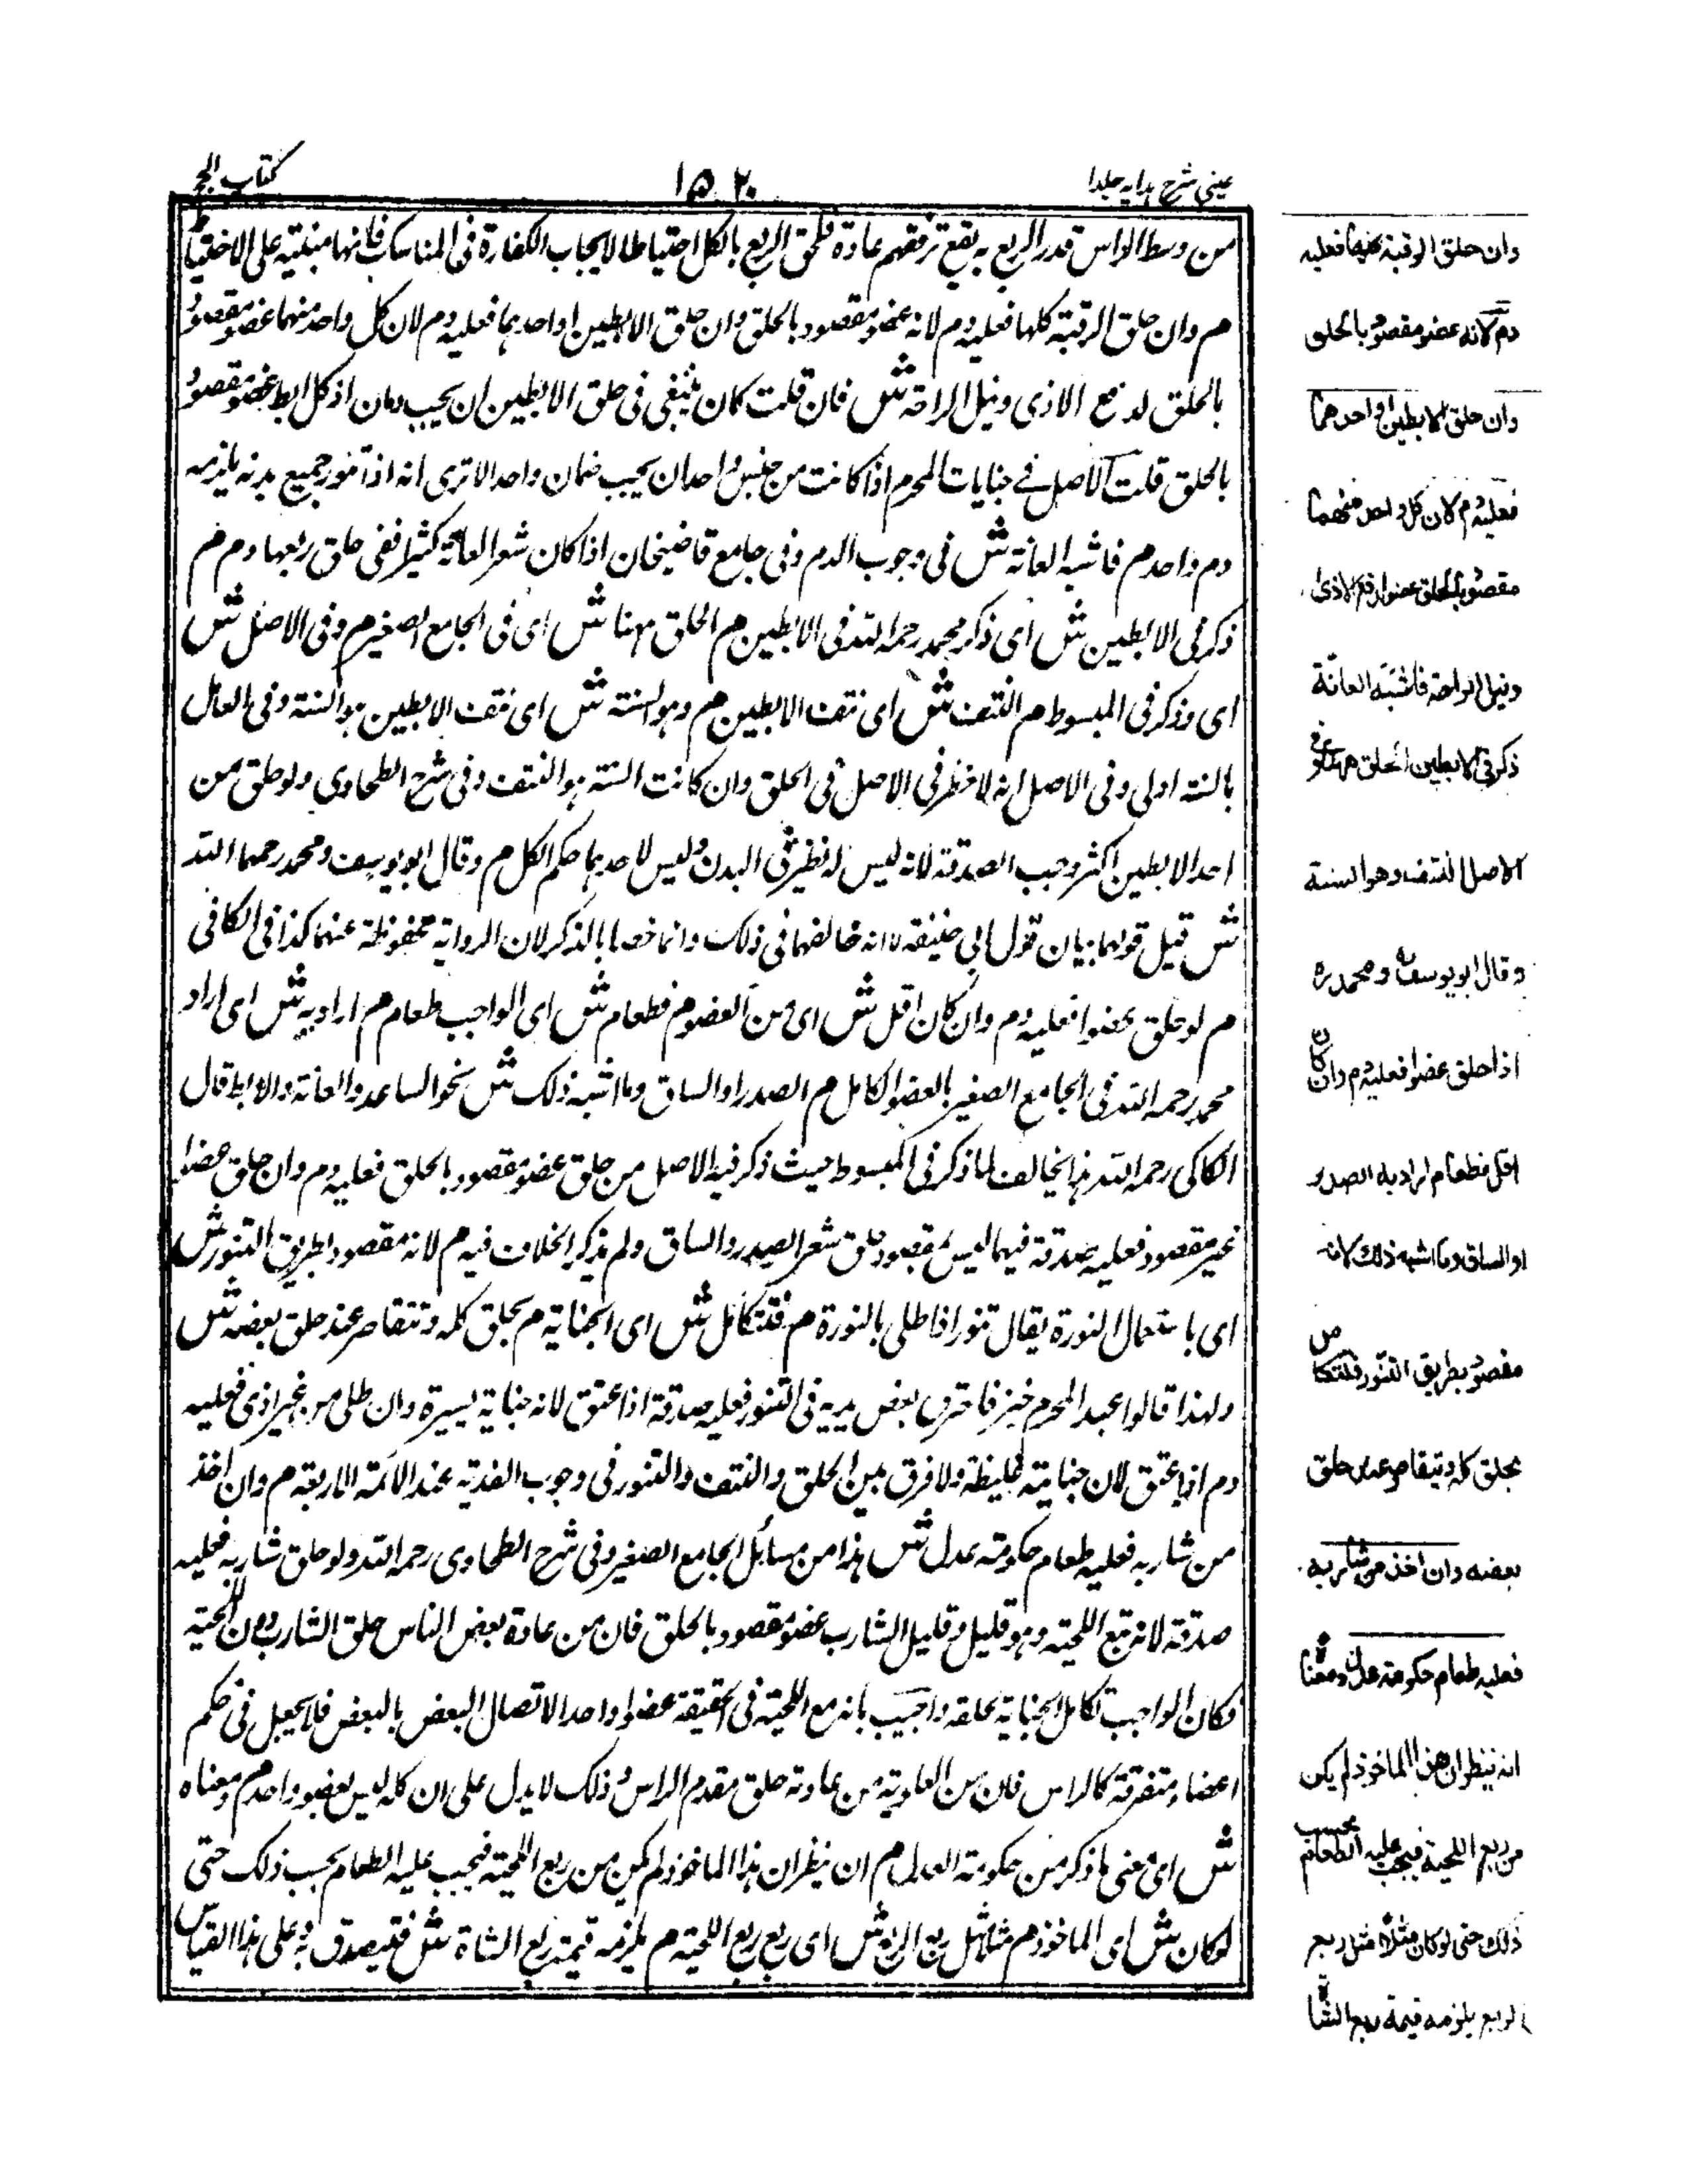 عینی شرح ہدایہ جلد ۱
۱۵۲۰
کتاب الحج
من وسط الراس قدر الربع به يقع ترفقهم عادة فلحق الربع بالكل احتياطا لايجاب الكفارة فى المناسك فانها مبنية على الاحتياط
م وان حلق الرقبة كلها فعليه دم لانه عضو مقصود بالحلق وان حلق الابطين او احدهما فعليه دم لان كل واحد منهما عضو مقصود
بالحلق لدفع الاذى ونيل الراحة ش فان قلت كان ينبغى فى حلق الابطين ان يجب دمان اذ كل ابط عضو مقصود
بالحلق قلت الاصل فى جنايات المحرم اذا كانت من جنس واحد ان يجب ضمان واحد الا ترى انه اذا تنور جميع بدنه يلزمه
دم واحد م فاشبه العانة ش فى وجوب الدم وفى جامع قاضيخان اذا كان شعر العانة كثيرا ففى حلق ربعها دم م
ذكر فى الابطين ش اى ذكر محمد رحمه الله فى الابطين م الحلق ههنا ش اى فى الجامع الصغير م وفى الاصل ش
اى وذكر فى المبسوط م النتف ش اى نتف الابطين م وهو السنة ش اى نتف الابطين هو السنة وفى العمل
بالسنة اولى وفى الاصل انه لا حظر فى الاصل فى الحلق وان كانت السنة هو النتف وفى شرح الطحاوى ولو حلق من
احد الابطين اكثر وجب الصدقة لانه ليس له نظير فى البدن وليس لاحدهما حكم الكل م وقال ابو يوسف ومحمد رحمهما الله
ش قيل قولهما بيان قول ابى حنيفة لا انه خالفهما فى ذلك وانما خصا بالذكر لان الرواية محفوظة عنهما كذا فى الكافى
م لو حلق عضوا فعليه دم وان كان اقل ش اى من العضو م فطعام ش اى الواجب طعام م اراد به ش اى اراد
محمد رحمه الله فى الجامع الصغير بالعضو الكامل م الصدر او الساق وما اشبه ذلك ش نحو الساعد والعانة والابط قال
الكاكى رحمه الله هذا يخالف لما ذكر فى المبسوط حيث ذكر فيه الاصل من حلق عضو مقصود بالحلق فعليه دم وان حلق عضوا
غير مقصود فعليه صدقة فيما ليس بمقصود حلق شعر الصدر والساق ولم يذكر الخلاف فيه م لانه مقصود بطريق التنور ش
اى باستعمال النورة يقال تنور اذا طلى بالنورة م فتتكامل ش اى الجناية م بحلق كله وتتقاصر عند حلق بعضه ش
ولهذا قالوا عبد المحرم خبز فاحترق بعض يديه فى التنور فعليه صدقة اذا عتق لانه جناية يسيرة وان طلى من غير اذى فعليه
دم اذا عتق لان جنايته غليظة ولا فرق بين الحلق والنتف والتنور فى وجوب الفدية عند الائمة الاربعة م وان اخذ
من شاربه فعليه طعام حكومة عدل ش هذا من مسائل الجامع الصغير وفى شرح الطحاوى رحمه الله ولو حلق شاربه فعليه
صدقة لانه تبع اللحية وهو قليل وقليل الشارب عضو مقصود بالحلق فان من عادة بعض الناس حلق الشارب دون اللحية
فكان الواجب تكامل الجناية بحلقه واجيب بانه مع اللحية فى الحقيقة عضو واحد لاتصال البعض بالبعض فلا يجعل فى حكم
اعضاء متفرقة كالراس فان من العلوية من عادته حلق مقدم الراس وذلك لا يدل على ان كله ليس بعضو واحد م ومعناه
ش اى معنى ما ذكر من حكومة العدل م ان ينظر ان هذا الماخوذ لم يكن من ربع اللحية فيجب عليه الطعام بحسب ذلك حتى
لو كان ش اى الماخوذ م مثلا مثل ربع الربع ش اى ربع ربع اللحية م يلزمه قيمة ربع الشاة ش فيتصدق به على هذا القياس
وان حلق الرقبة كلها فعليه
دم لانه عضو مقصود بالحلق
وان حلق الابطين او احدهما
فعليه دم لان كل واحد منهما
مقصود بالحلق لدفع الاذى
ونيل الراحة فاشبه العانة
ذكر فى الابطين الحلق ههنا وفى
الاصل النتف وهو السنة
وقال ابو يوسف ومحمد ره
اذا حلق عضوا فعليه دم وان كان
اقل فطعام اراد به الصدر
او الساق وما اشبه ذلك لانه
مقصود بطريق التنور فتتكامل
بحلق كله ويتقاصر عند حلق
بعضه وان اخذ من شاربه
فعليه طعام حكومة عدل ومعناه
انه ينظر ان هذا الماخوذ لم يكن
من ربع اللحية فيجب عليه الطعام بحسب
ذلك حتى لو كان مثلا مثل ربع
الربع يلزمه قيمة ربع الشاة